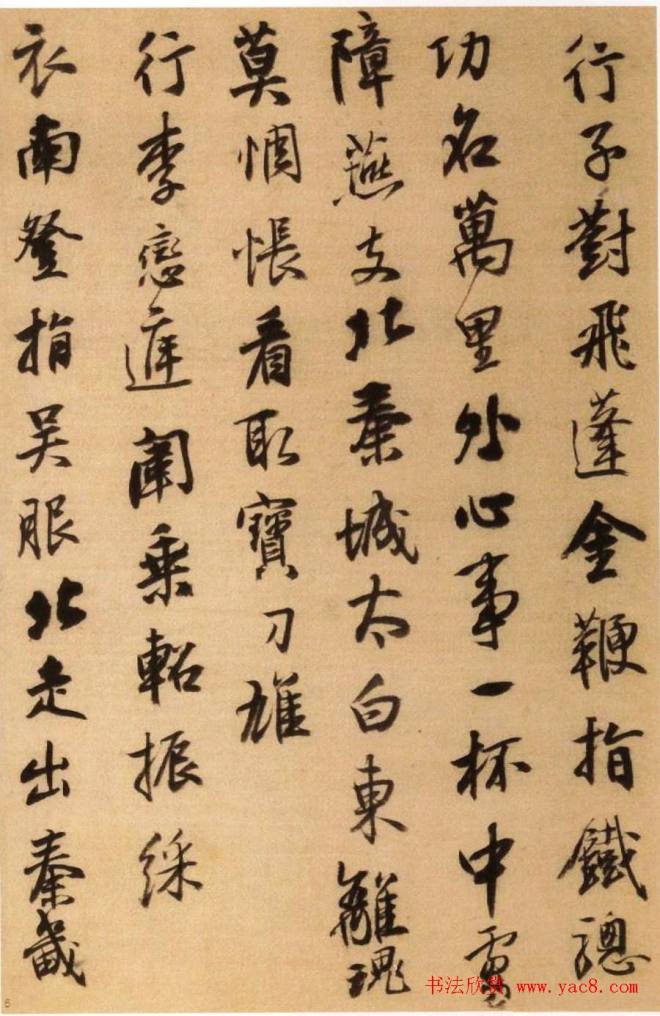 行子對飛蓬金鞭指鐵驄
功名萬里外心事一杯中虜
障燕支北秦城太白東離魂
莫惆悵看取寶刀雄
行李戀庭闈乘軺振綵
衣南登指吳服北走出秦畿
书法欣赏 www.yac8.com
6